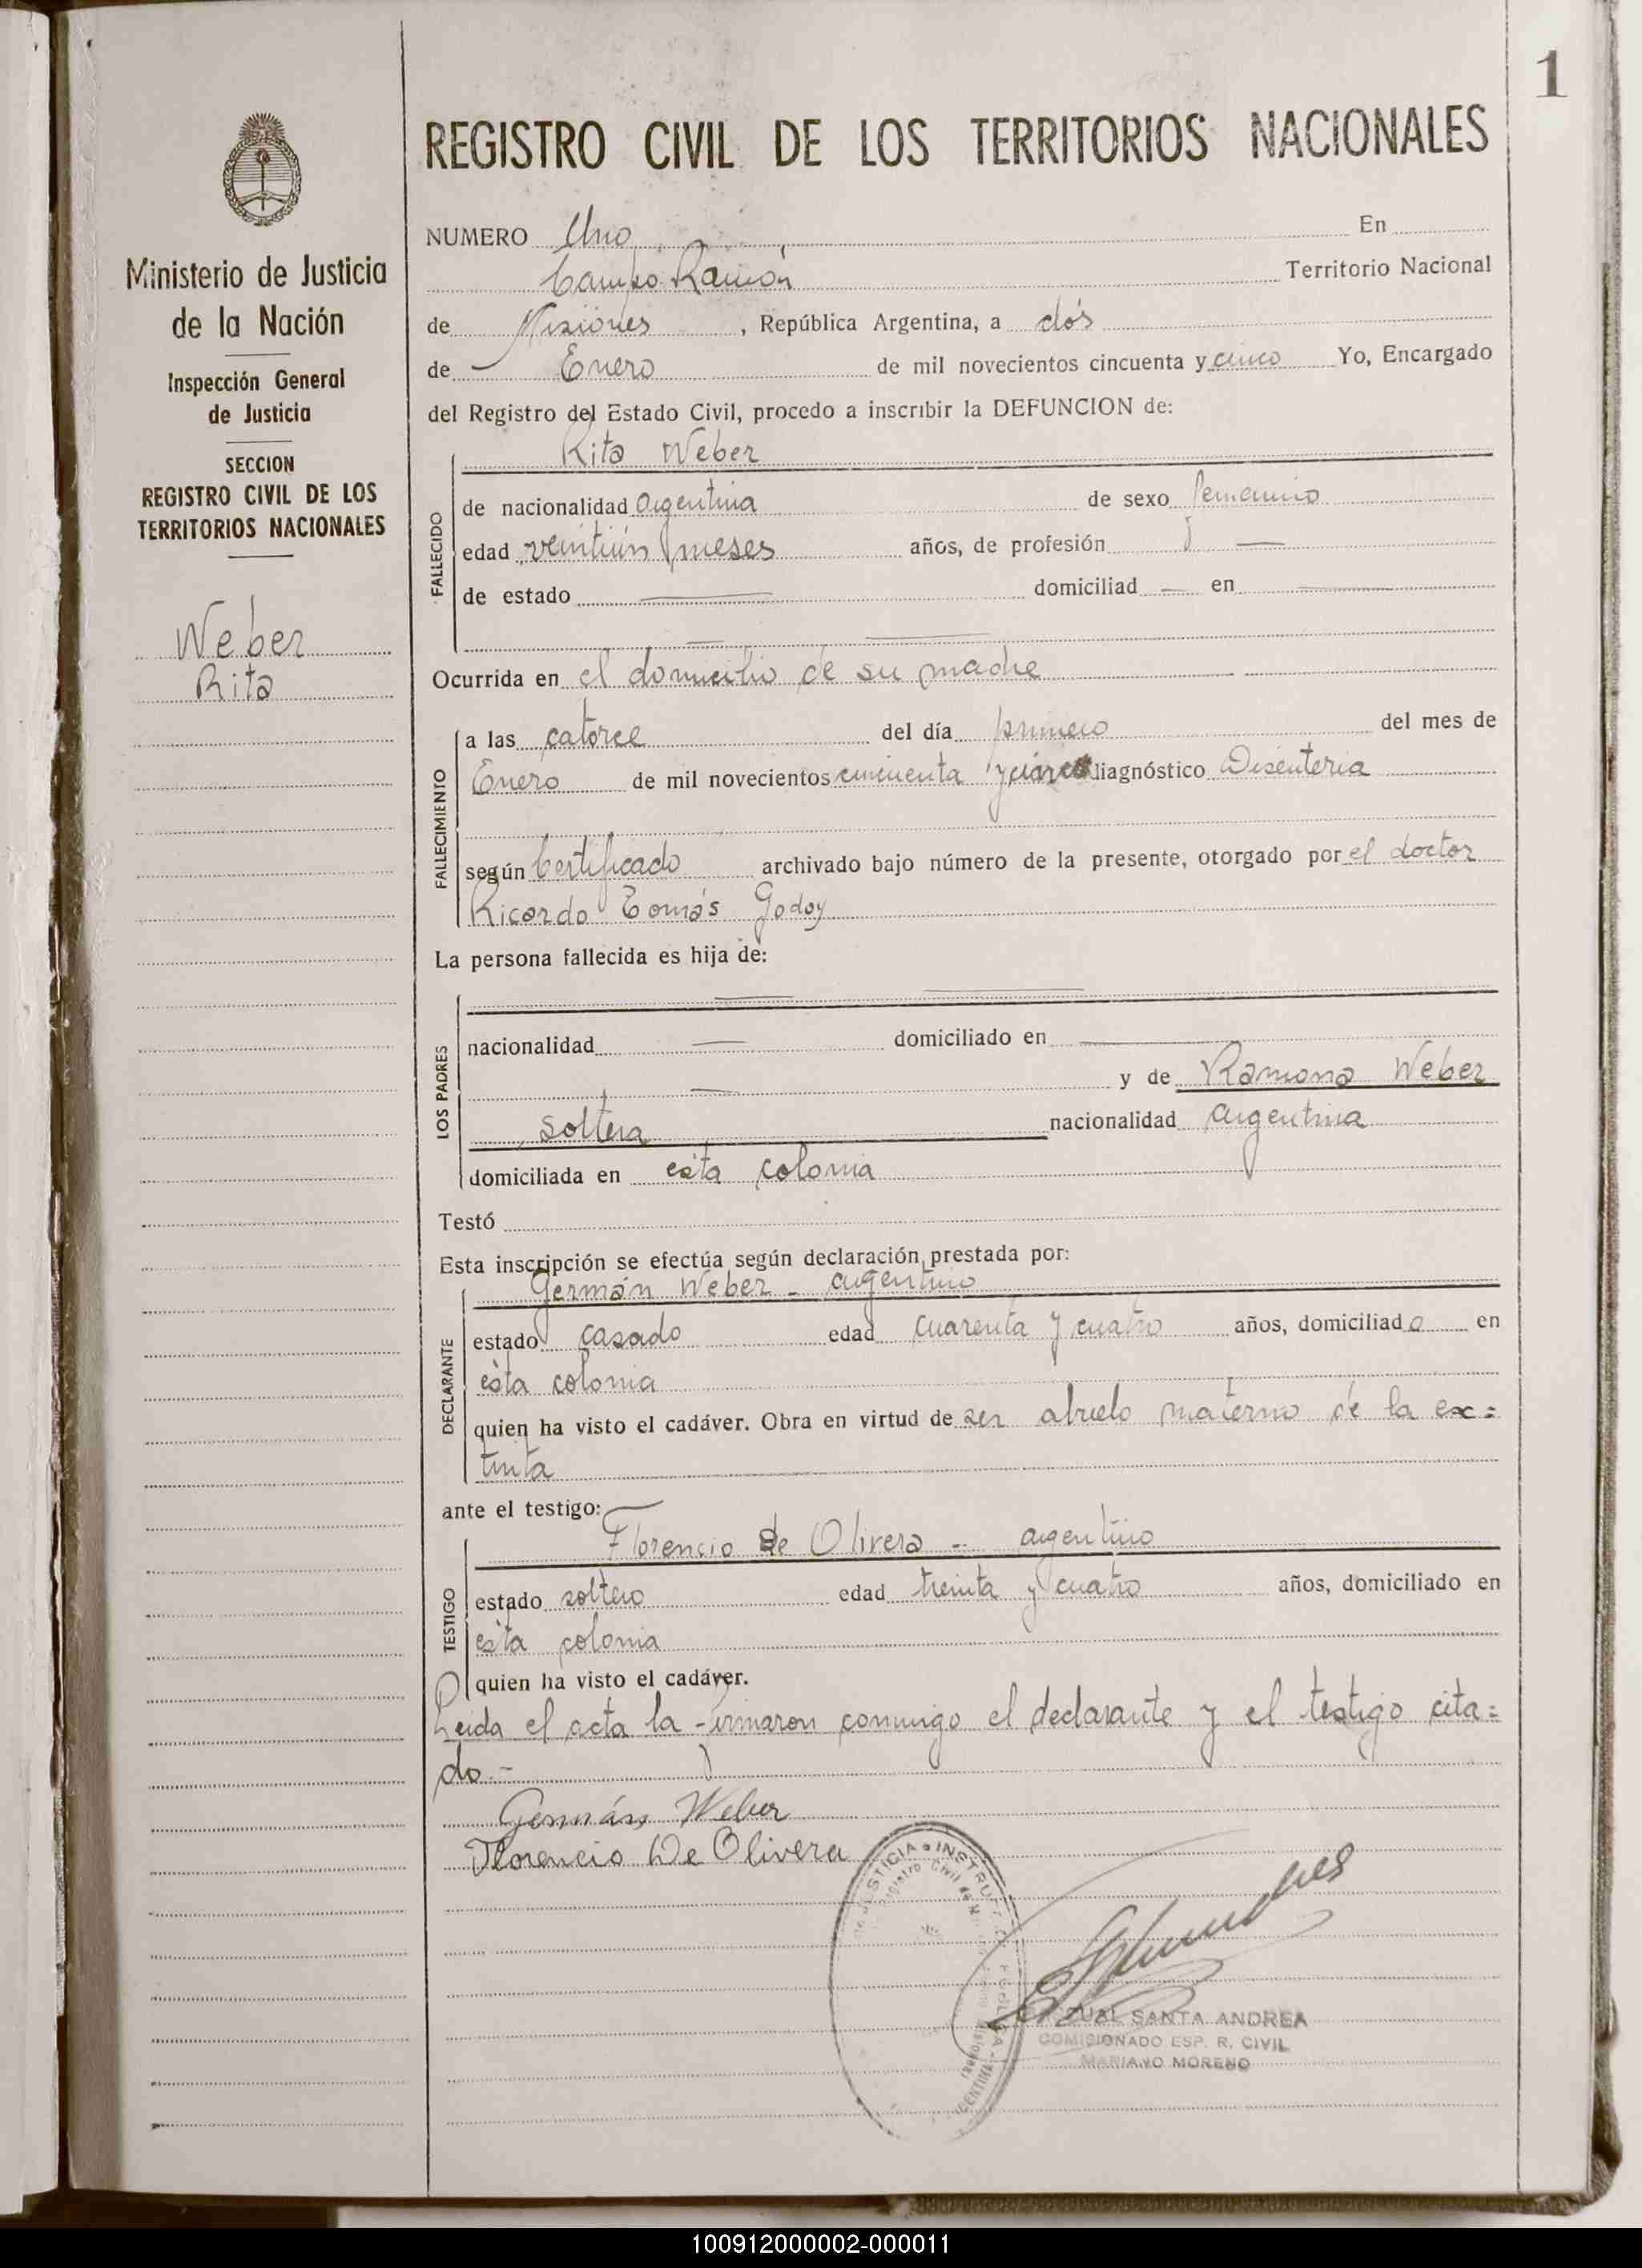 1
REGISTRO CIVIL DE LOS TERRITORIOS NACIONALES
Ministerio de Justicia
de la Nación
Inspección General
de Justicia
SECCION
REGISTRO CIVIL DE LOS
TERRITORIOS NACIONALES
Weber
Rita
NUMERO Uno En
Campo Ramón Territorio Nacional
de Misiones, República Argentina, a dós
de Enero de mil novecientos cincuenta y cinco Yo, Encargado
del Registro del Estado Civil, procedo a inscribir la DEFUNCION de:
Rita Weber
FALLECIDO
de nacionalidad argentina de sexo femenino
edad veintiún meses años, de profesión —
de estado — domiciliad — en —
Ocurrida en el domicilio de su madre
FALLECIMIENTO
a las catorce del día primero del mes de
Enero de mil novecientos cincuenta y cinco diagnóstico Disenteria
según Certificado archivado bajo número de la presente, otorgado por el doctor
Ricardo Tomás Godoy
La persona fallecida es hija de:
LOS PADRES
nacionalidad — domiciliado en —
— y de Ramona Weber
soltera nacionalidad argentina
domiciliada en ésta colonia
Testó
Esta inscripción se efectúa según declaración prestada por:
Germán Weber - argentino
DECLARANTE
estado casado edad cuarenta y cuatro años, domiciliado en
ésta colonia
quien ha visto el cadáver. Obra en virtud de ser abuelo materno de la ex=
tinta
ante el testigo:
Florencio de Olivera - argentino
TESTIGO
estado soltero edad treinta y cuatro años, domiciliado en
ésta colonia
quien ha visto el cadáver.
Leida el acta la firmaron conmigo el declarante y el testigo cita=
do.-
Germán Weber
Florencio De Olivera
SANTA ANDREA
COMISIONADO ESP. R. CIVIL
MARIANO MORENO
100912000002-000011